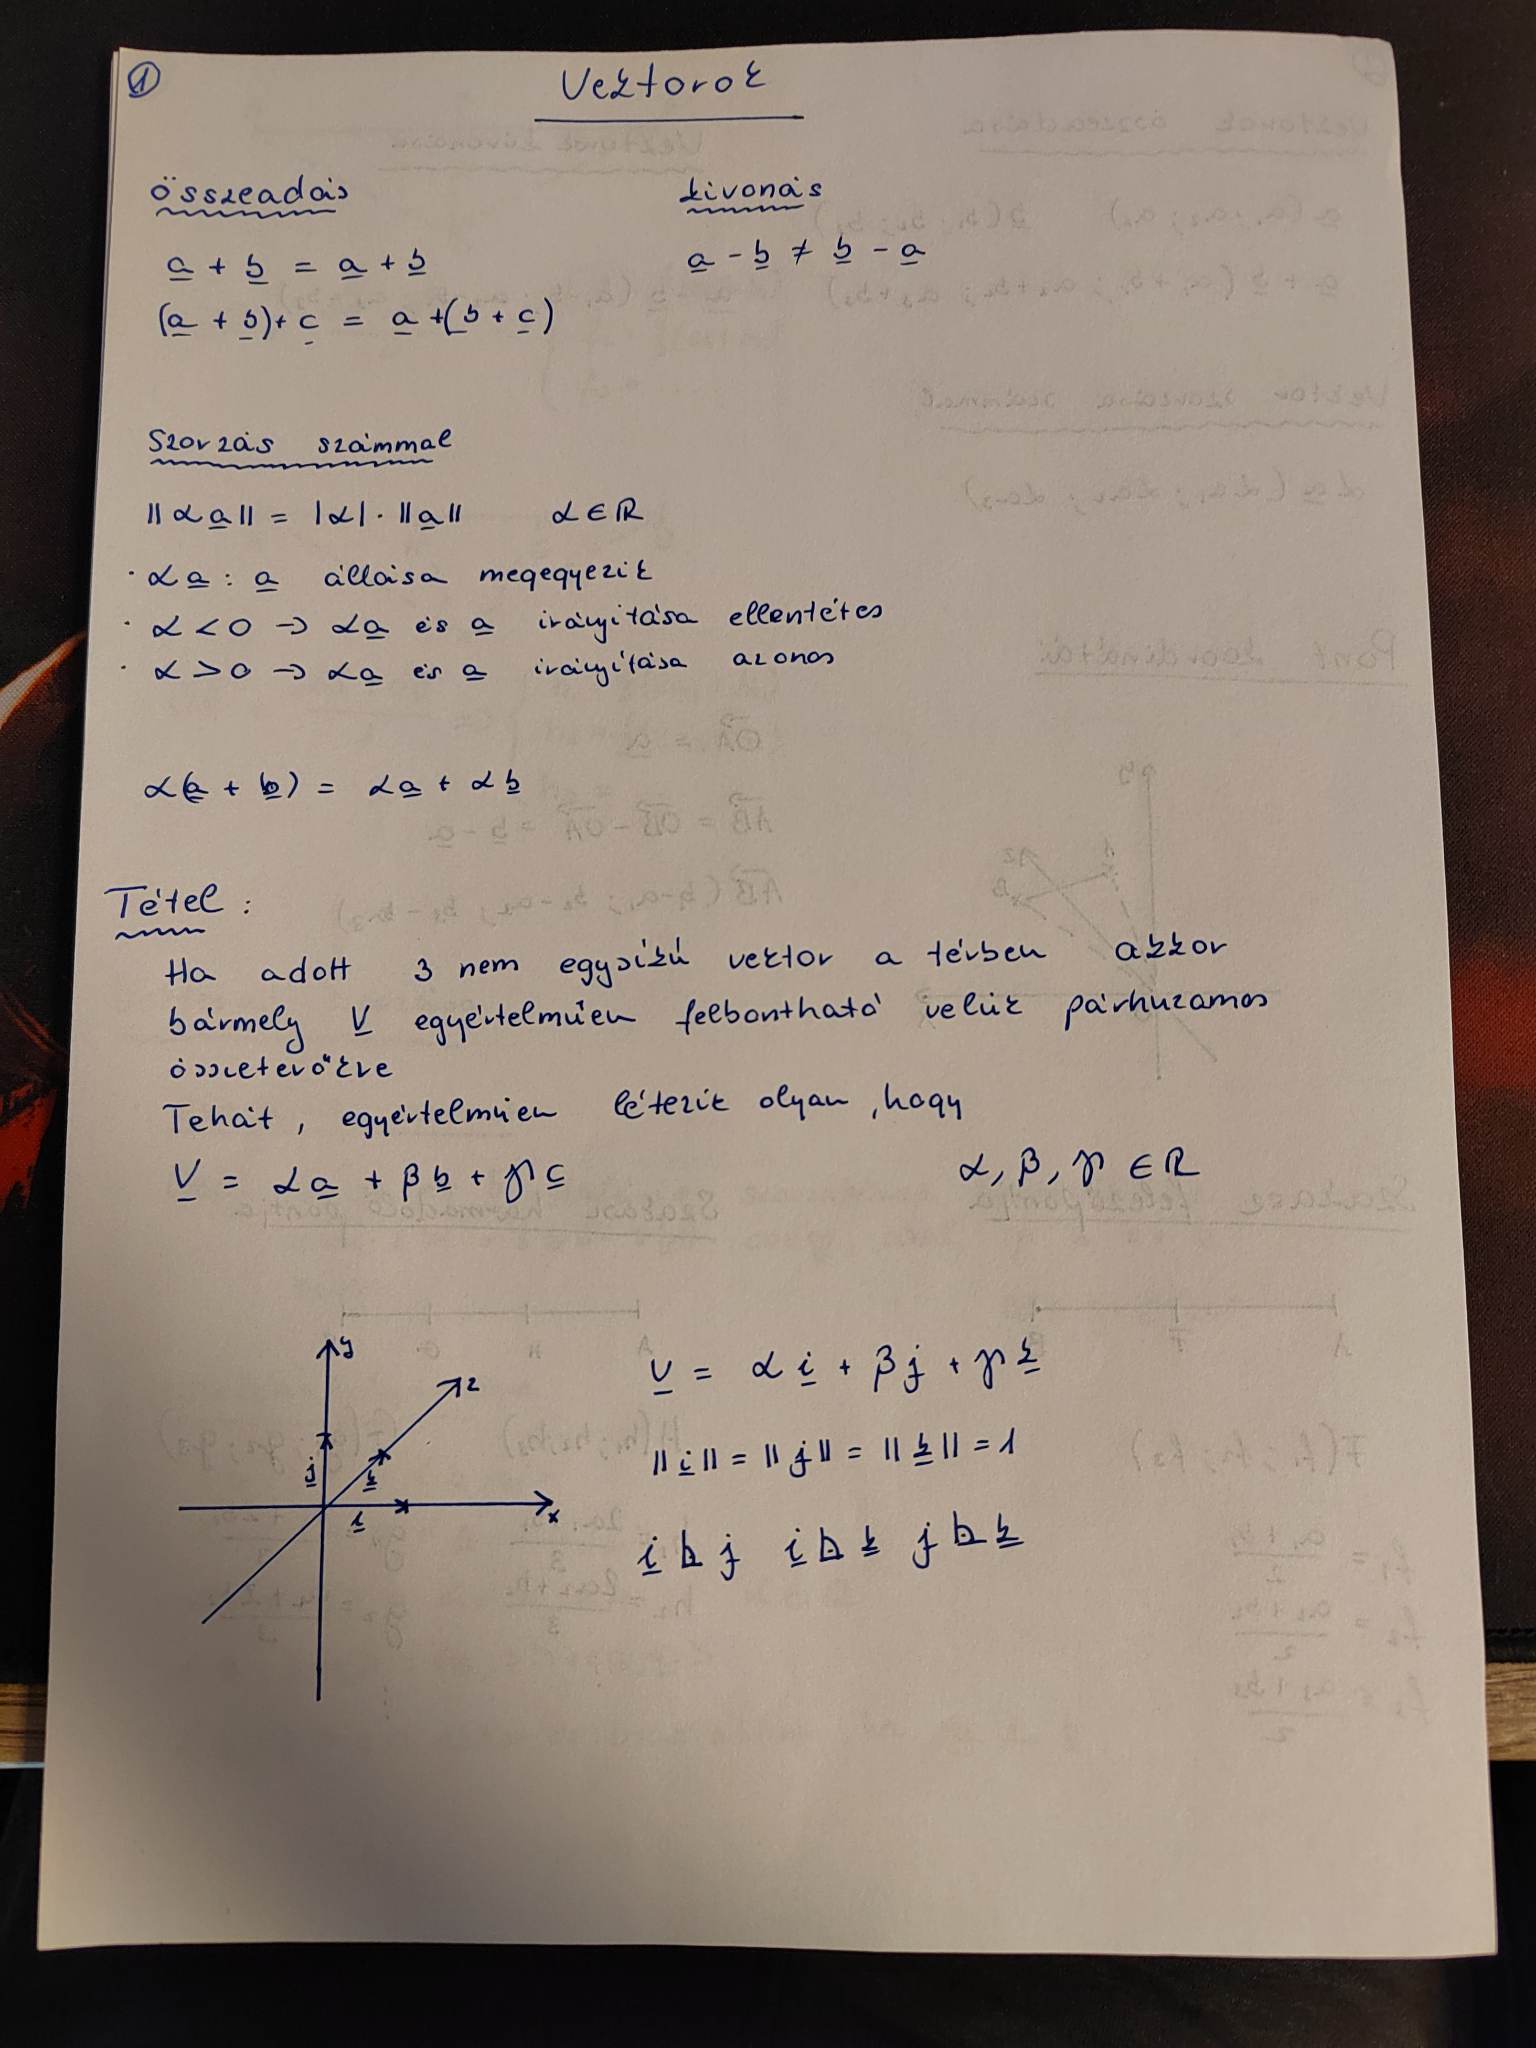 1
Vektorok
összeadás
kivonás
a + b = a + b
a - b ≠ b - a
(a + b) + c = a + (b + c)
Szorzás számmal
||αa|| = |α| · ||a|| α ∈ ℝ
· αa : a állása megegyezik
· α < 0 → αa és a irányítása ellentétes
· α > 0 → αa és a irányítása azonos
α(a + b) = αa + αb
Tétel :
Ha adott 3 nem egysíkú vektor a térben akkor
bármely V egyértelműen felbontható velük párhuzamos
összetevőkre
Tehát, egyértelműen létezik olyan, hogy
V = αa + βb + γc α, β, γ ∈ ℝ
y
z
j
k
i
x
V = αi + βj + γk
||i|| = ||j|| = ||k|| = 1
i ⊾ j i ⊾ k j ⊾ k